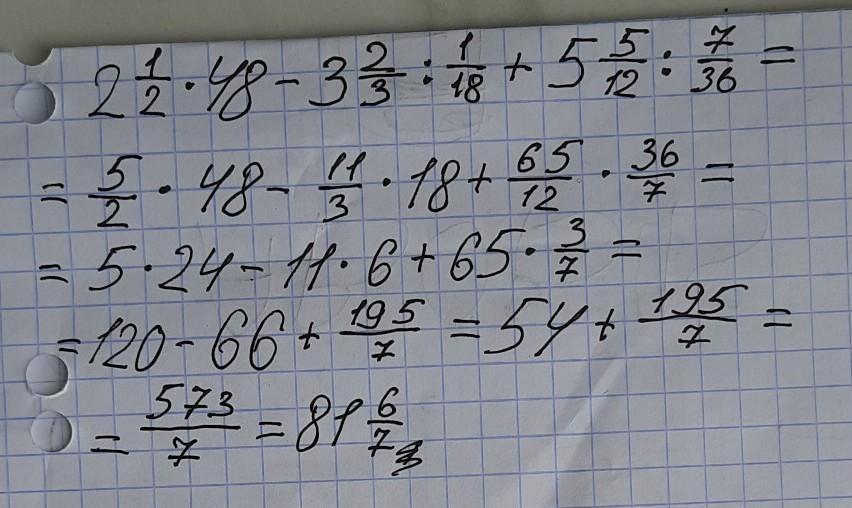 2 1/2 · 48 - 3 2/3 : 1/18 + 5 5/12 : 7/36 =
= 5/2 · 48 - 11/3 · 18 + 65/12 · 36/7 =
= 5 · 24 - 11 · 6 + 65 · 3/7 =
= 120 - 66 + 195/7 = 54 + 195/7 =
= 573/7 = 81 6/7